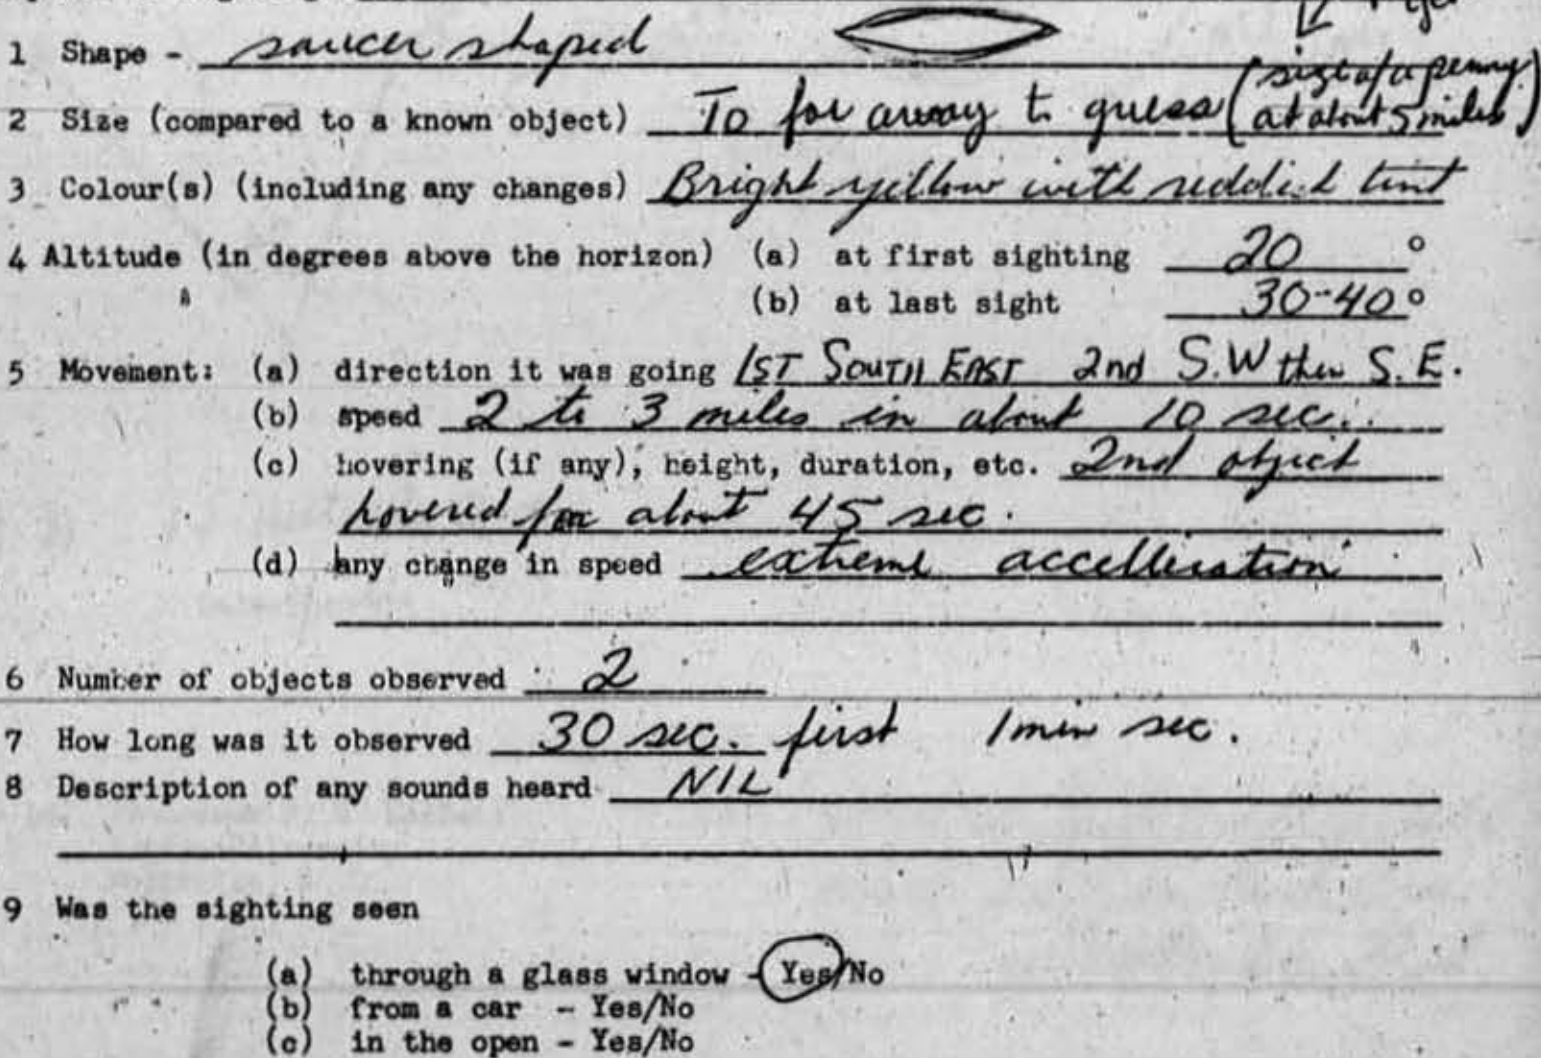 1 Shape - saucer shaped
2 Size (compared to a known object) To far away to guess (size of a penny at about 5 miles)
3 Colour(s) (including any changes) Bright yellow with reddish tint
4 Altitude (in degrees above the horizon) (a) at first sighting 20 °
(b) at last sight 30-40°
5 Movement: (a) direction it was going 1ST SOUTH EAST 2nd S.W then S.E.
(b) speed 2 to 3 miles in about 10 sec.
(c) hovering (if any), height, duration, etc. 2nd object
hovered for about 45 sec.
(d) any change in speed extreme accelleration
6 Number of objects observed 2
7 How long was it observed 30 sec. first 1 min sec.
8 Description of any sounds heard NIL
9 Was the sighting seen
(a) through a glass window - Yes/No
(b) from a car - Yes/No
(c) in the open - Yes/No